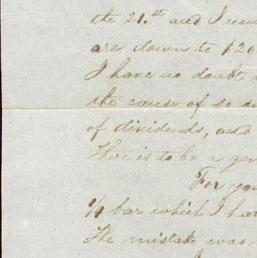 the 21.st and I rece
are down to $20
I have no doubt
the cause of so
of dividends, and
There is to be a gen
For you
1/4 bar which I ha
The mistake was